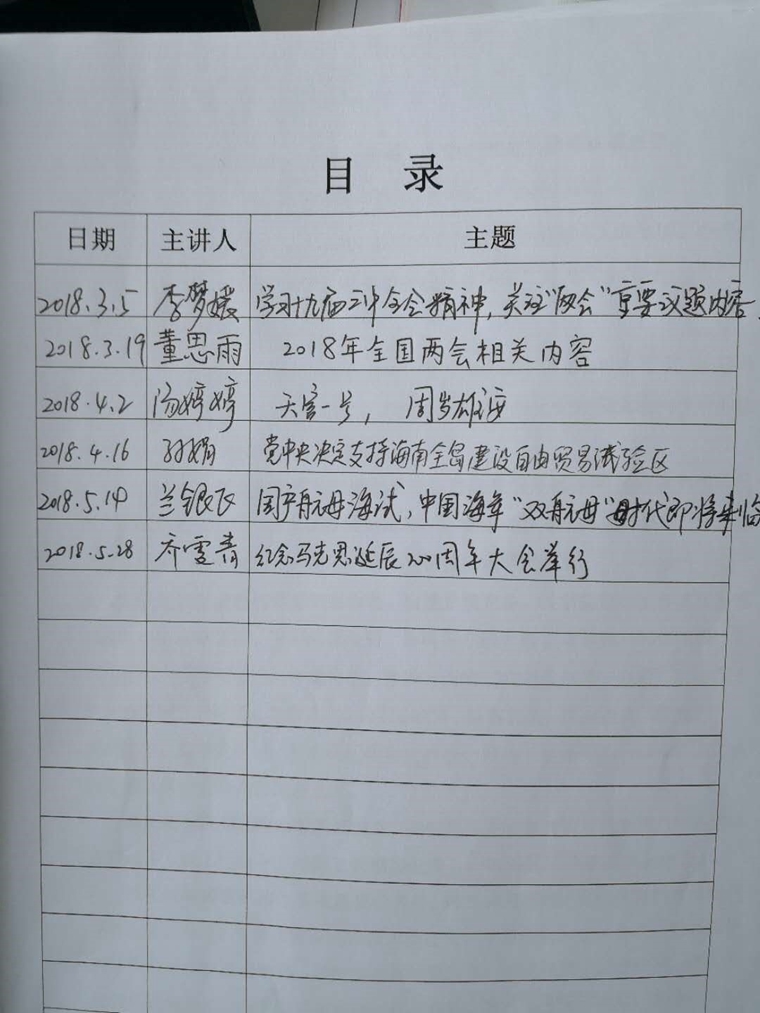 目 录
日期 主讲人 主题
2018.3.5 李梦媛 学习十九届三中全会精神，关注“两会”重要议题内容.
2018.3.19 董思雨 2018年全国两会相关内容
2018.4.2 汤婷婷 天宫一号，
2018.4.16 孙娟 党中央决定支持海南全岛建设自由贸易试验区
2018.5.14 兰银飞 国产航母海试，中国海军“双航母”时代即将来临
2018.5.28 乔雪青 纪念马克思诞辰200周年大会举行